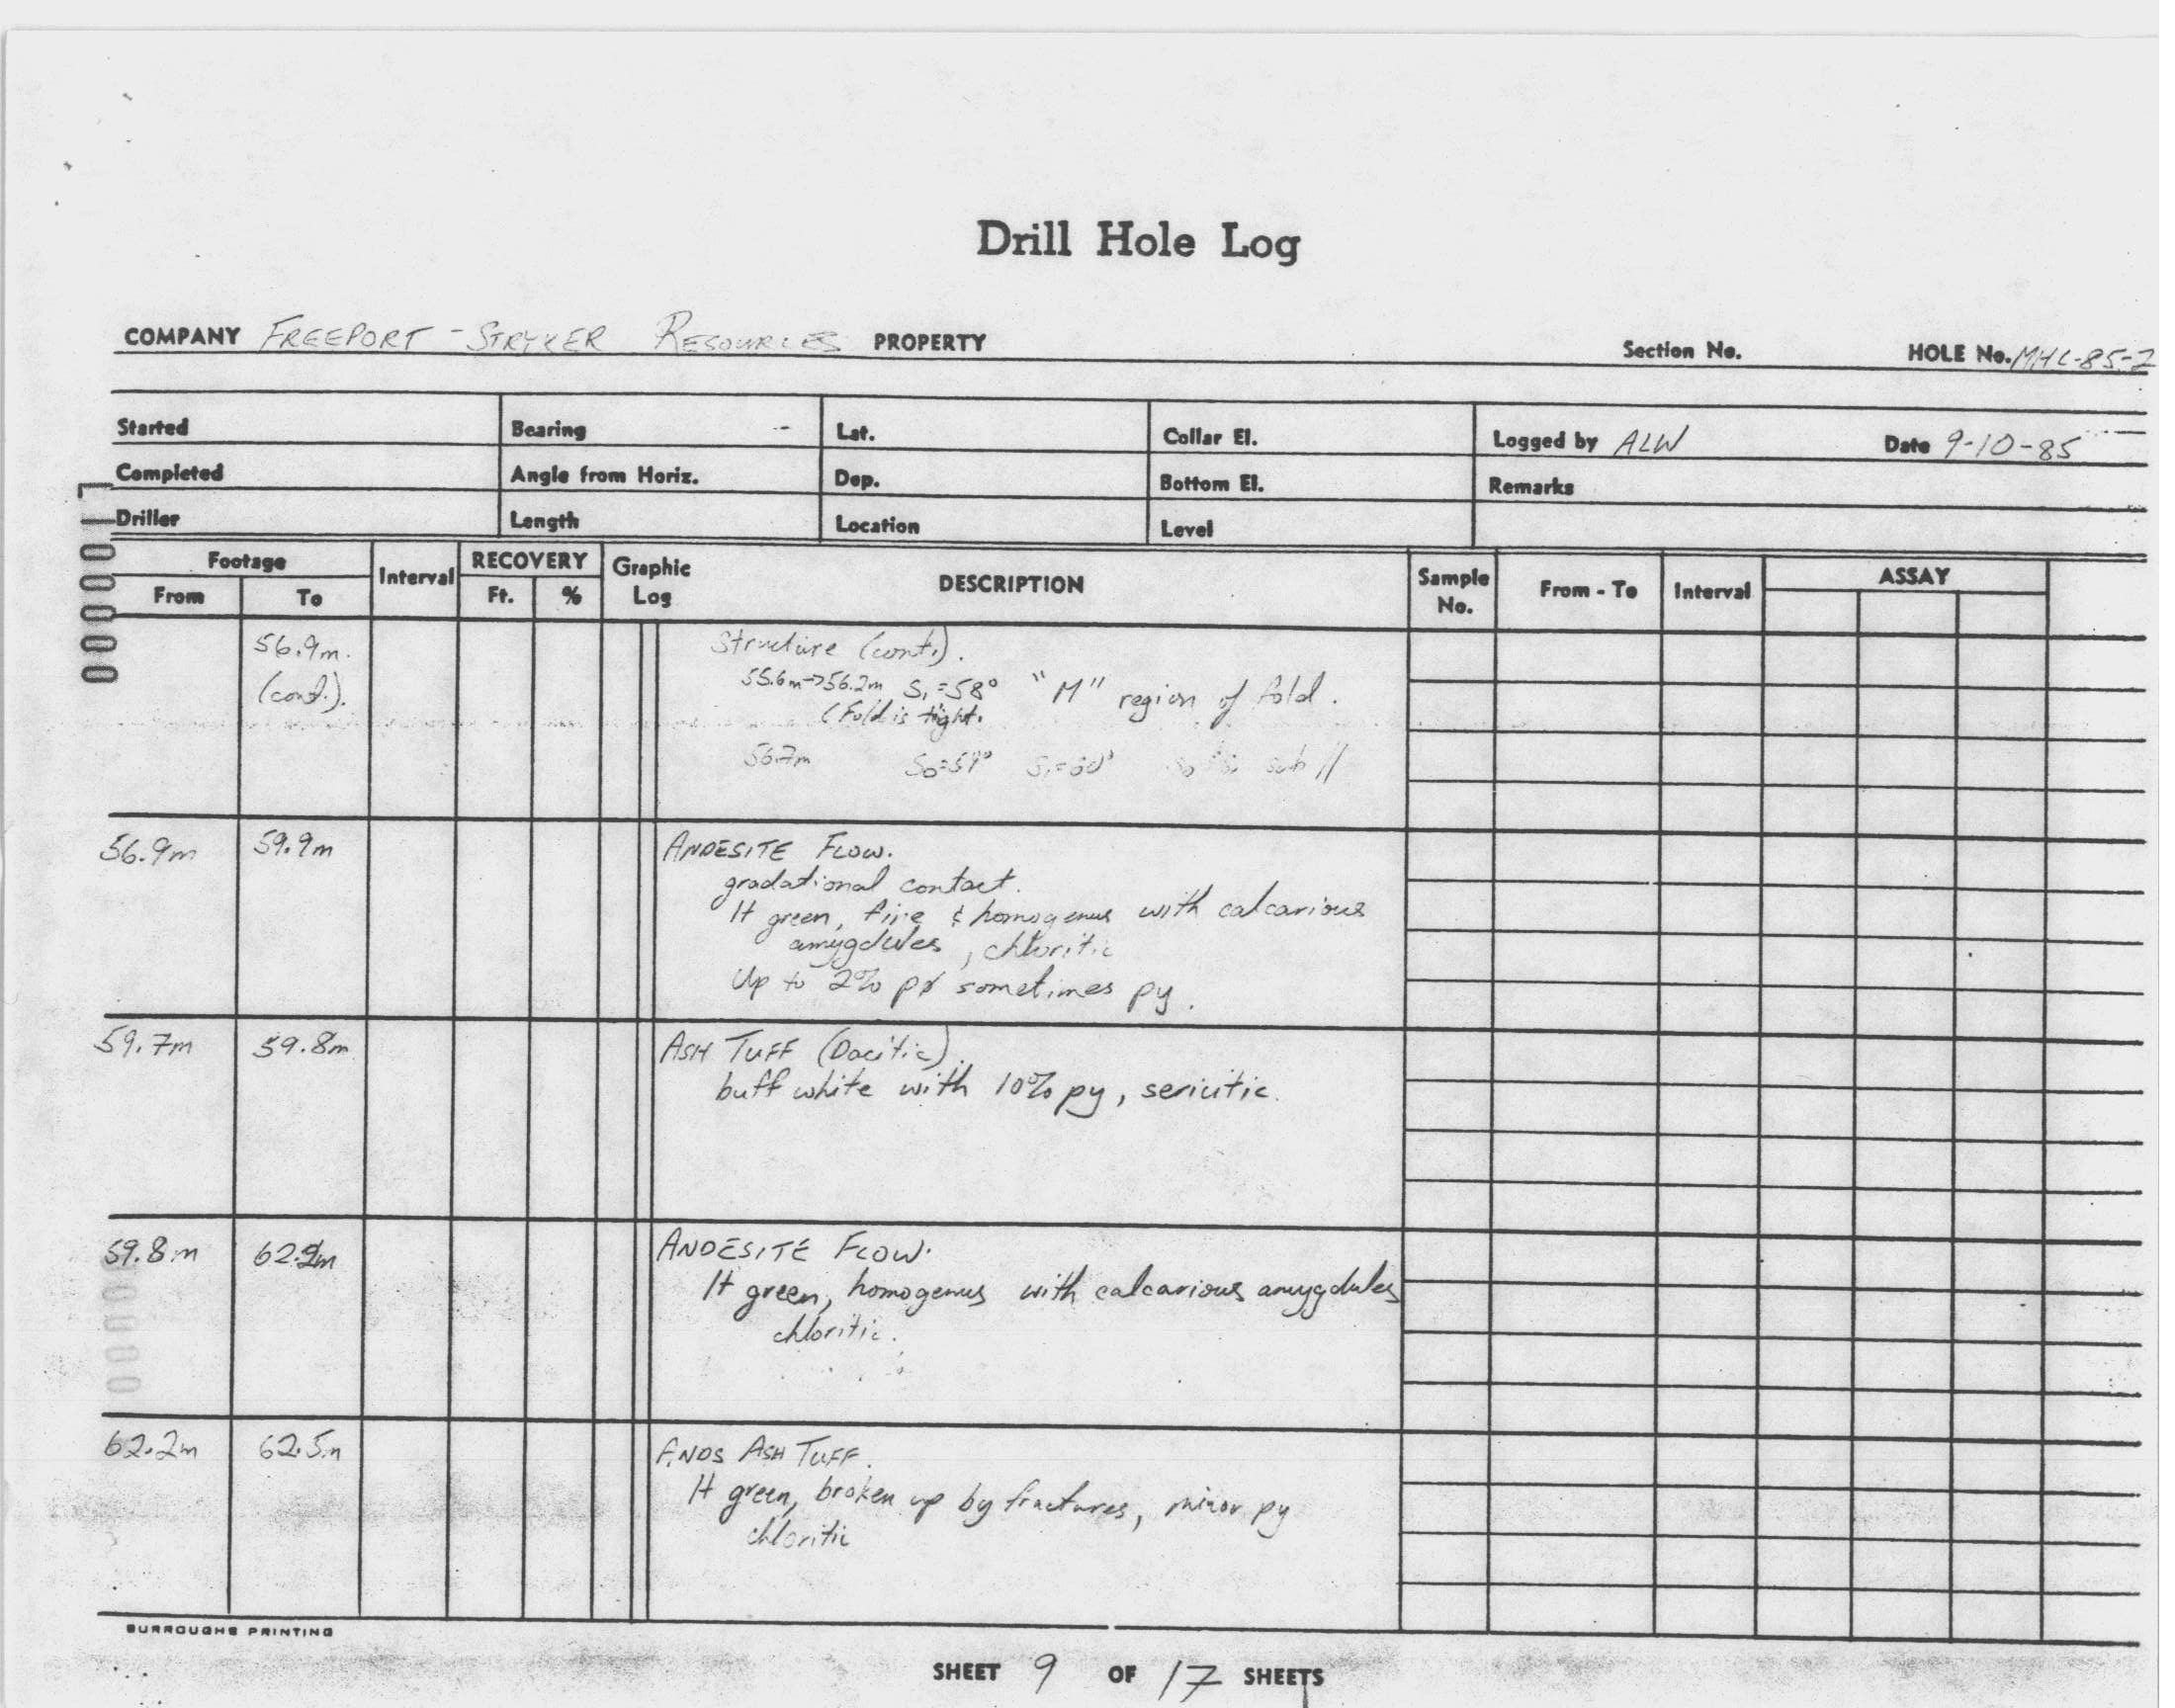 Drill Hole Log
COMPANY FREEPORT - STRYKER RESOURCES PROPERTY Section No. HOLE No. MHL-85-2
Started Bearing Lat. Collar El. Logged by ALW Date 9-10-85
Completed Angle from Horiz. Dep. Bottom El. Remarks
Driller Length Location Level
Footage Interval RECOVERY Graphic Log DESCRIPTION Sample No. From - To Interval ASSAY
From To Ft. %
56.9m. Structure (cont.).
(cont.). 55.6m->56.2m S1=58° "M" region of fold.
(Fold is tight.
56.7m S1=60° sub //
56.9m 59.9m ANDESITE FLOW.
gradational contact.
lt green, fine & homogenus with calcarious
amygdules, chloritic
Up to 2% pø sometimes py.
59.7m 59.8m ASH TUFF (Dacitic).
buff white with 10% py, sericitic.
59.8m ANDESITE FLOW.
lt green, homogenus with calcarious amygdules
chloritic.
62.2m 62.5m ANDS ASH TUFF.
lt green, broken up by fractures, minor py
chloritic
BURROUGHS PRINTING
SHEET 9 OF 17 SHEETS